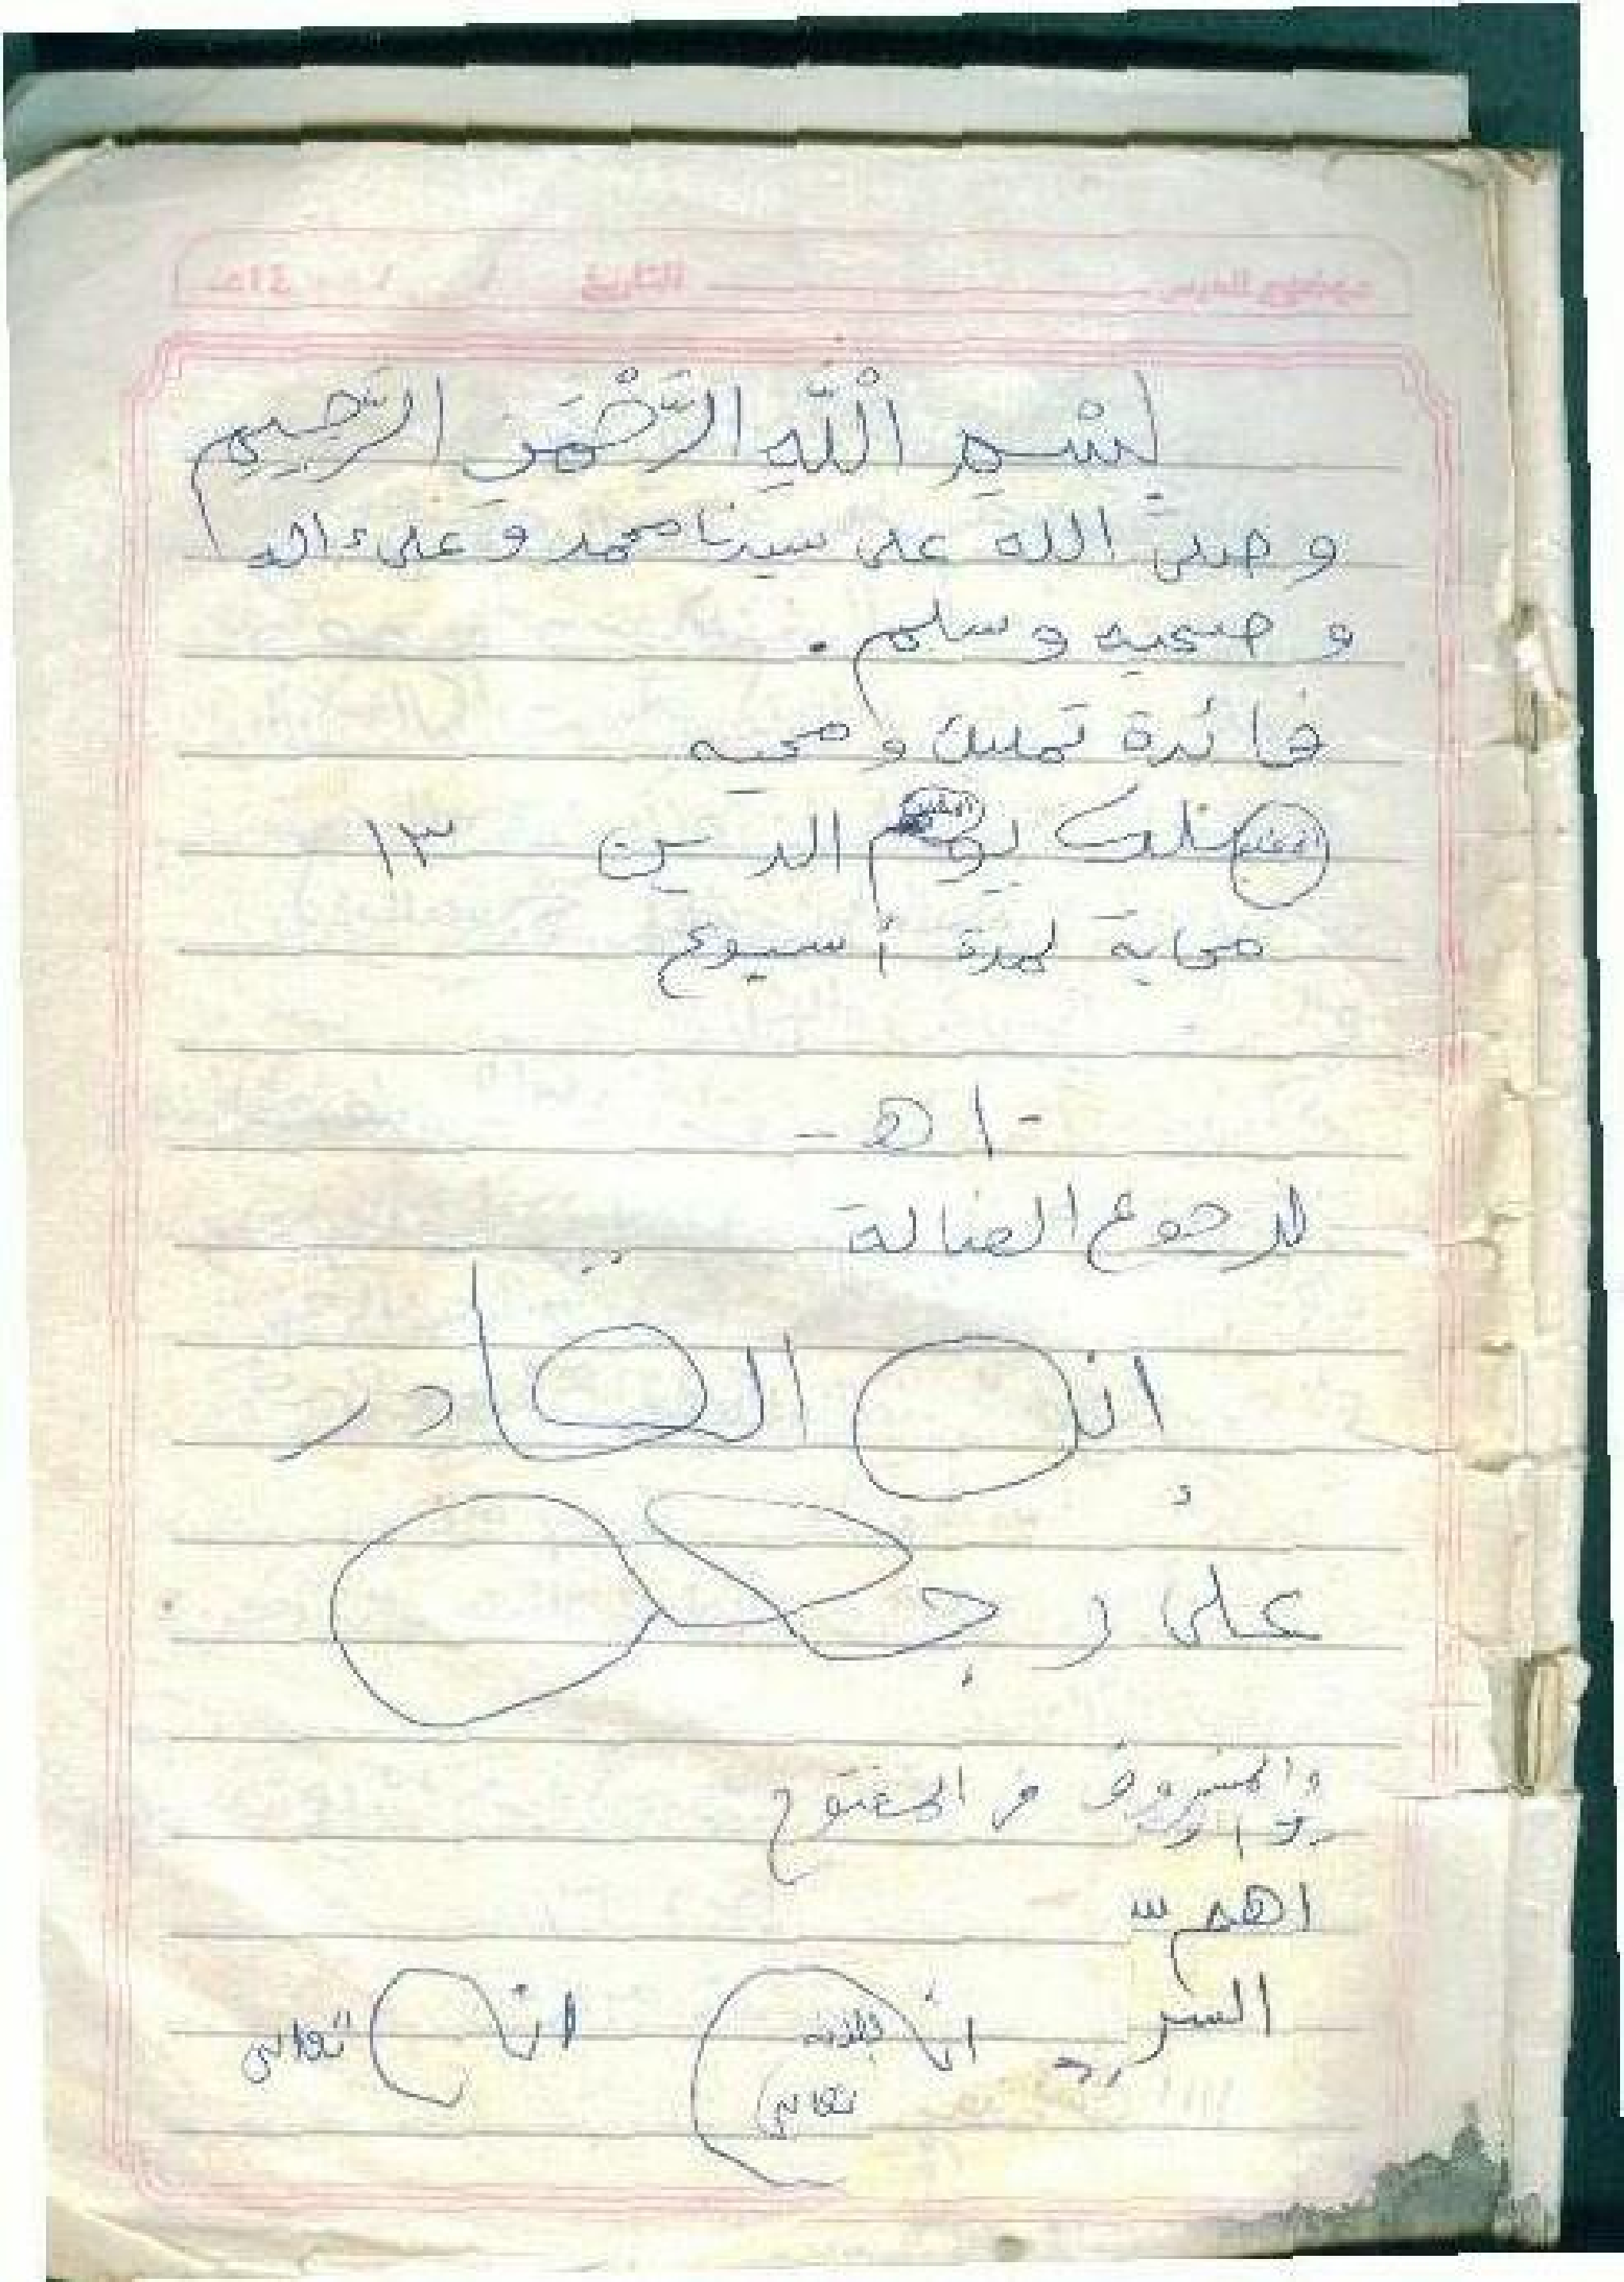 بِسْمِ اللَّهِ الرَّحْمَنِ الرَّحِيمِ
وصلى الله على سيدنا محمد وعلى ءاله
وصحبه وسلم.
فائدة تمليك ومحبه
ملك يوم الدين ١٣
محاية لمدة أسبوع
- اهـ -
لرجوع الضالة
إنه القادر
على رجعه
والمسروق في المفتوح
اهم
السر انه بإذنه تعالى انه تعالى